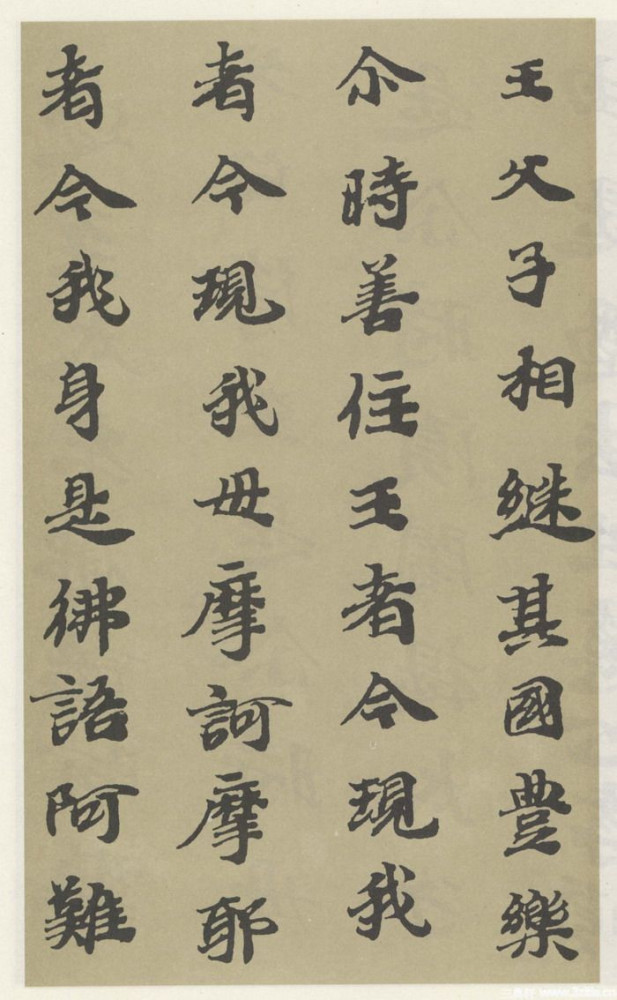 王父子相継其國豊樂
尒時善住王者今現我
者今現我母摩訶摩耶
者今我身是彿語阿難